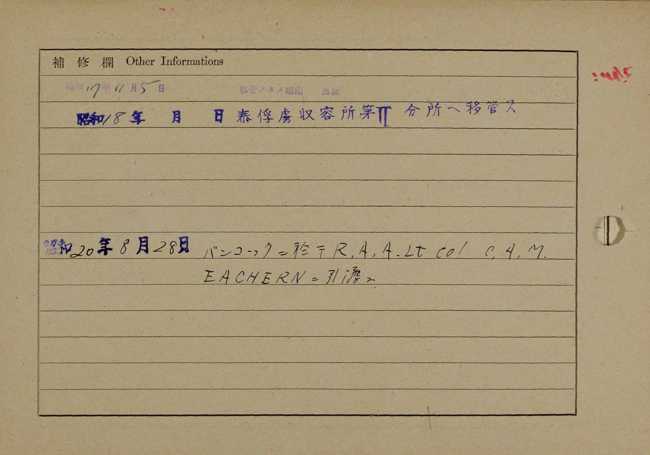 補修欄 Other Informations
昭和17年11月5日
昭和18年 月 日 泰俘虜収容所第II分所へ移管ス
昭和20年8月28日 バンコックニ於テR.A.A. Lt Col C.A.M.
EACHERNニ引渡ス